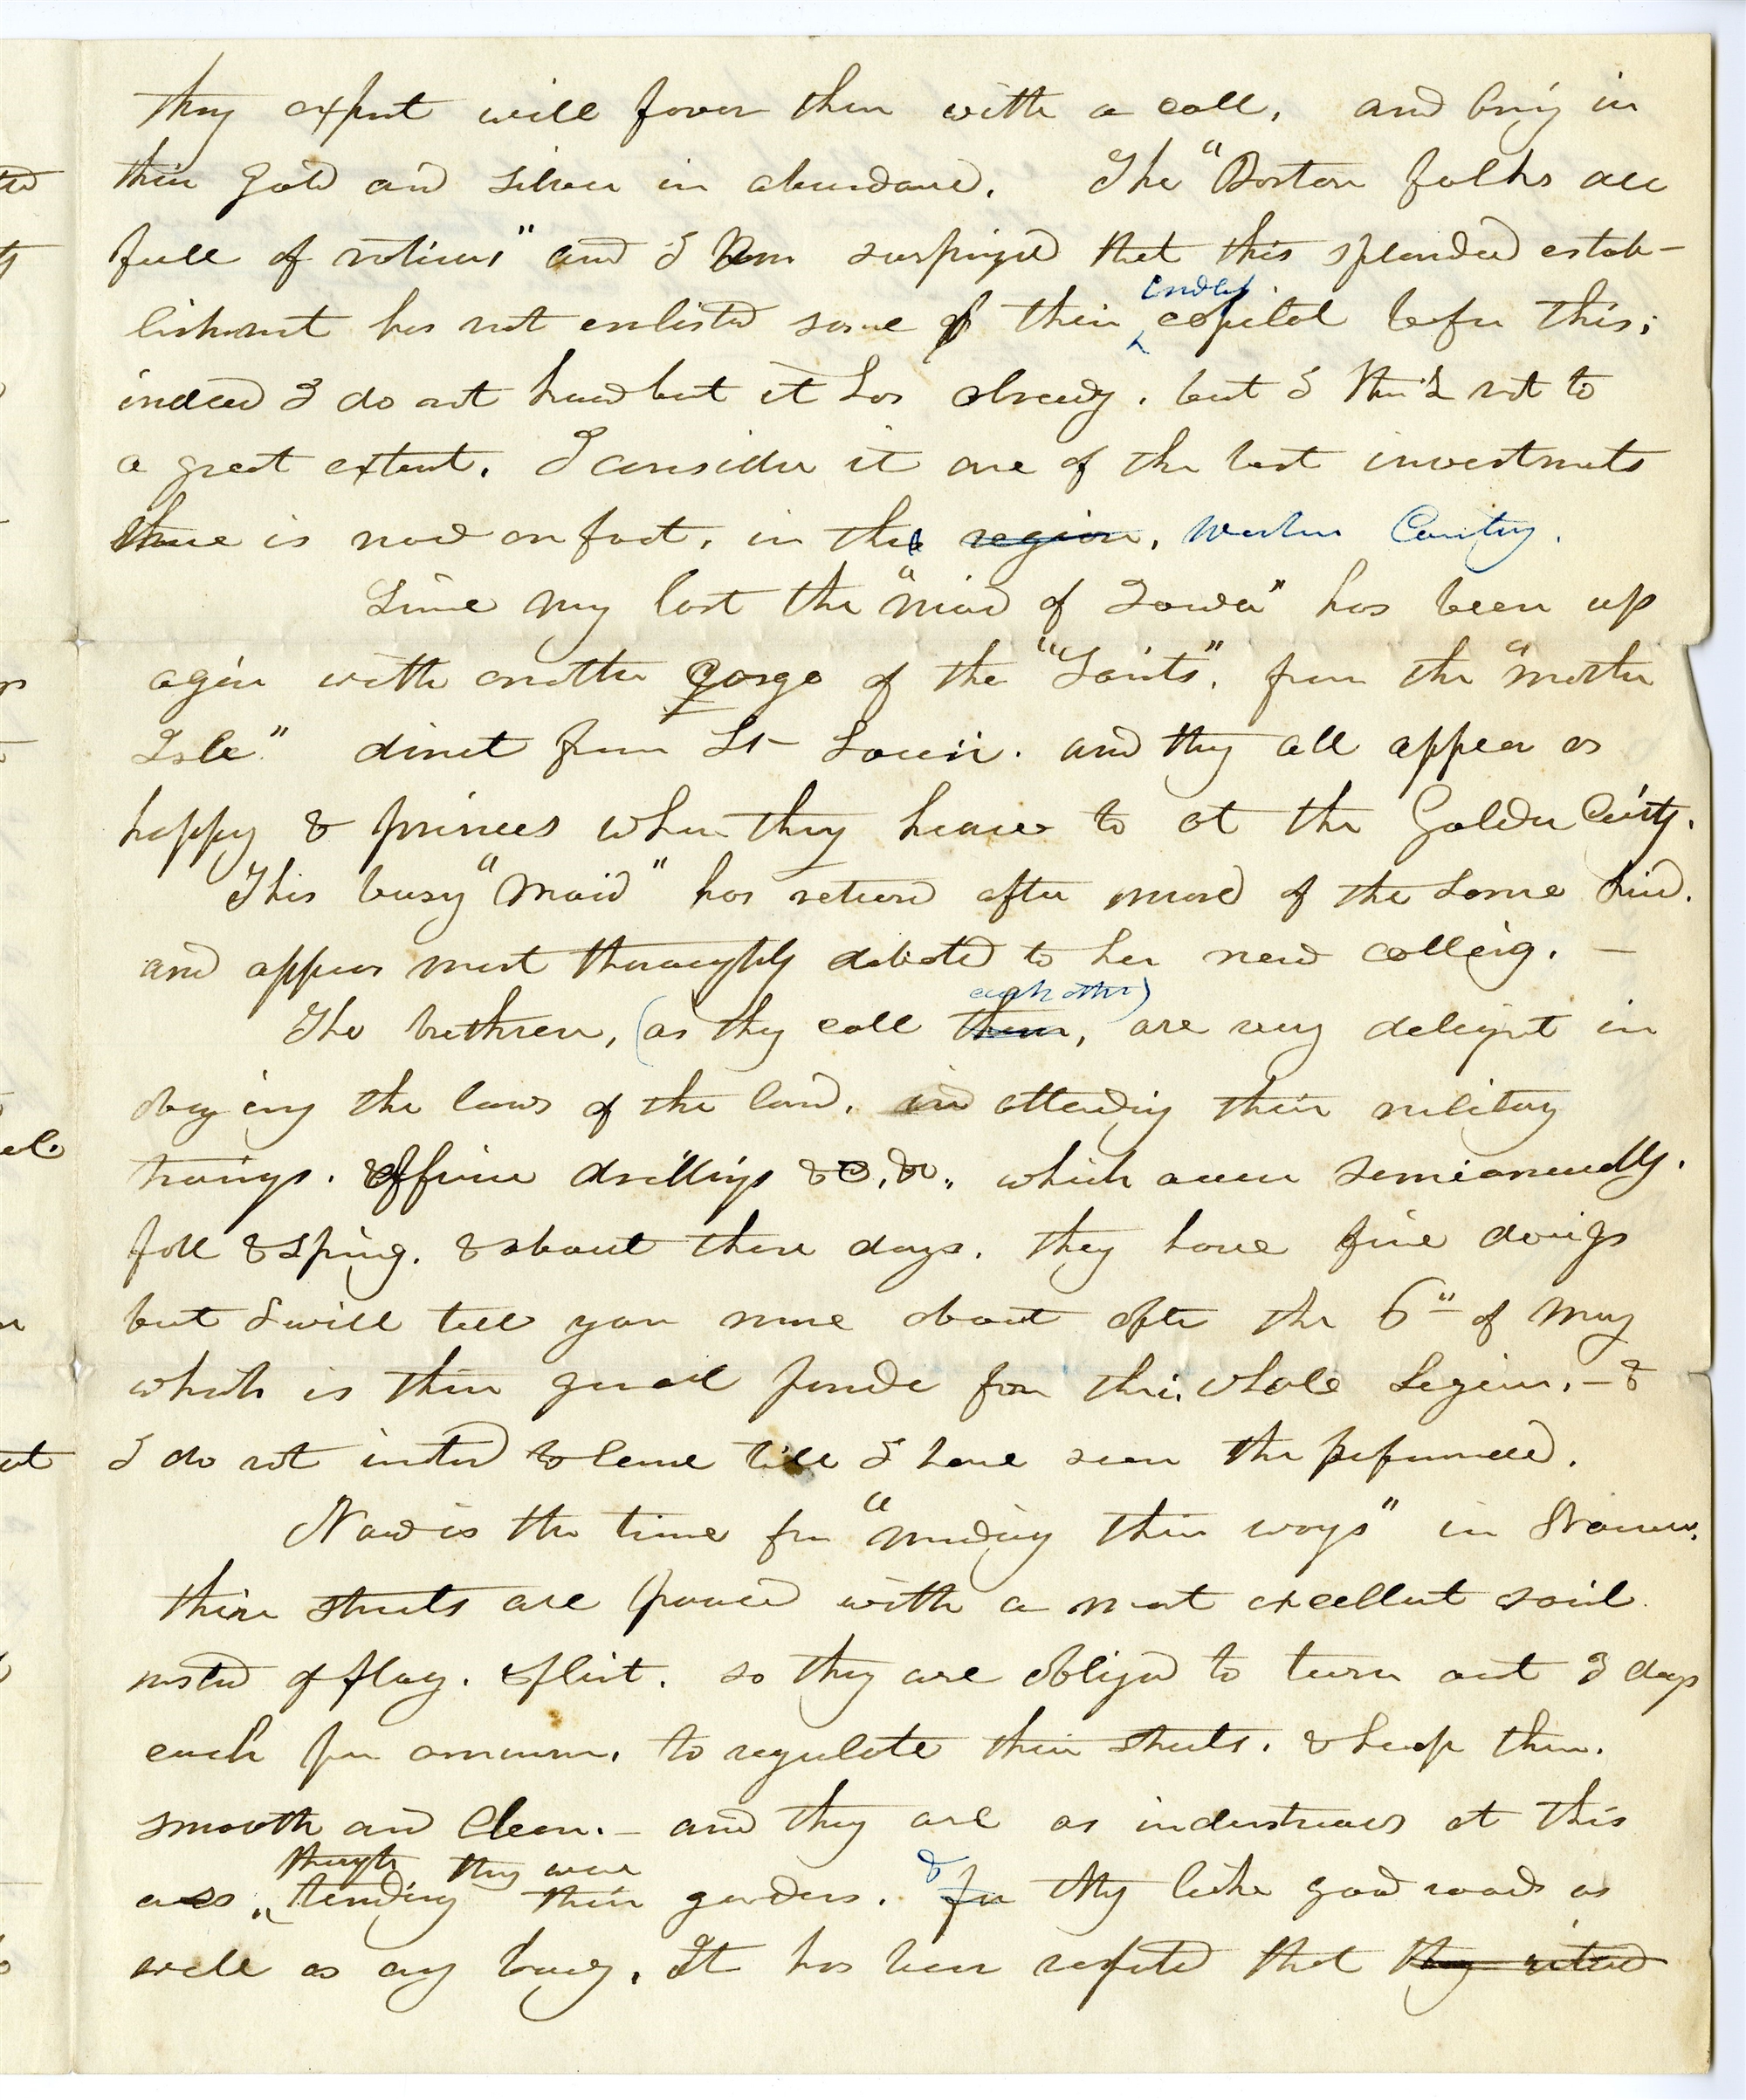 they expect will favor them with a call, and bring in
their gold and silver in abundance. The "Boston folks are
full of notions" and I am surprized that this splended estab-
lishment has not enlisted some of their endless capital before this;
indeed I do not know but it has already, but I think not to
a great extent. I consider it one of the best investments
there is now on foot, in the region, Western Country.
Since my last the "maid of Iowa" has been up
again with another gorge of the "Saints", from the "mother
Isle" direct from St Louis. and they all appear as
happy & princes when they heave to at the Golden City.
This busy "Maid" has returned after more of the same kind.
and appears most thoroughly devoted to her new calling. —
The brethren, (as they call them, each other) are very diligent in
obeying the laws of the land, in attending their military
trainings. officer drillings &c. &c., which occur semiannually.
fall & spring. & about these days, they have fine doings
but I will tell you more about after the 6" of May
which is their general parade for the whole Legion, — &
I do not intend to leave till I have seen the performance.
Now is the time for "mending their ways" in Nauvoo.
their streets are paved with a most excellent soil
instead of flag. & flint. so they are obliged to turn out 3 days
each per annum, to regulate their streets, & keep them
smooth and clean. — and they are as industrious at this
as though they were tending their gardens. & for they like good roads as
well as any body. It has been reported that they